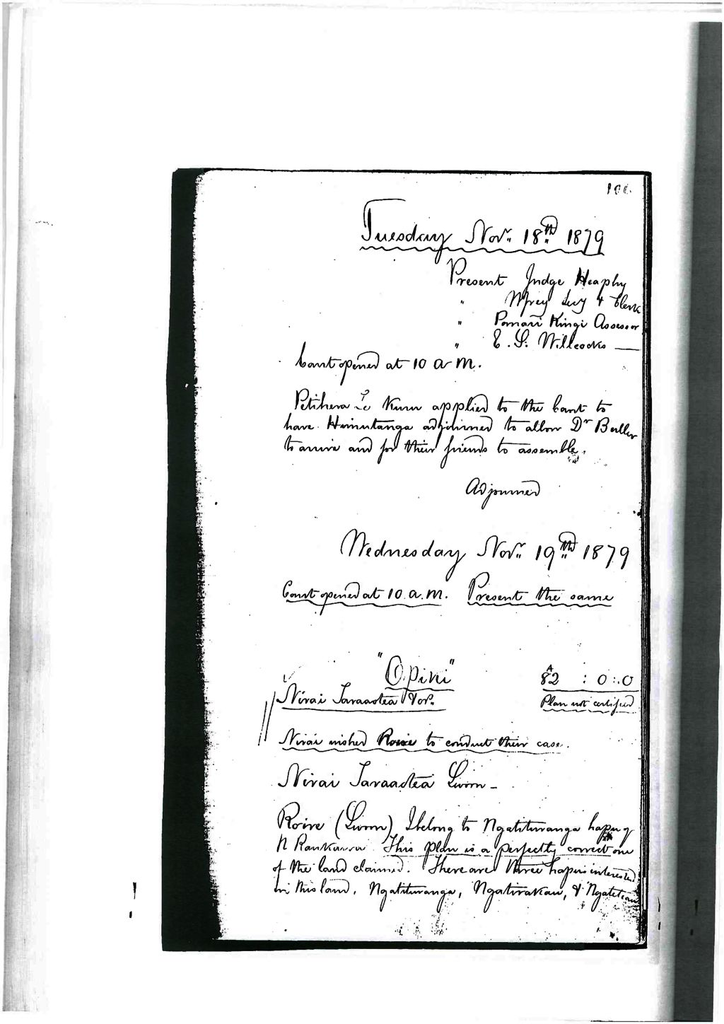 106.
Tuesday Novr. 18th 1879
Present Judge Heaphy
" Wfrey Secy & Clerk
" Pomare Kingi Assessor
" E. S. Willcocks —
Court opened at 10 a.m.
Petihera Te Kuru applied to the Court to
have Himutanga adjourned to allow Dr Buller
to arrive and for their friends to assemble.
Adjourned
Wednesday Novr. 19th 1879
Court opened at 10. a.m. Present the same
"Opiki"
82 : 0 : 0
Nirai Taraaotea & or.
Plan not certified
Nirai wished Roire to conduct their case.
Nirai Taraaotea Sworn –
Roire (Sworn) I belong to Ngatituranga hapu of
N Raukawa This plan is a perfectly correct one
of the land claimed. There are three hapus interested
in this land, Ngatituranga, Ngatirakau, &